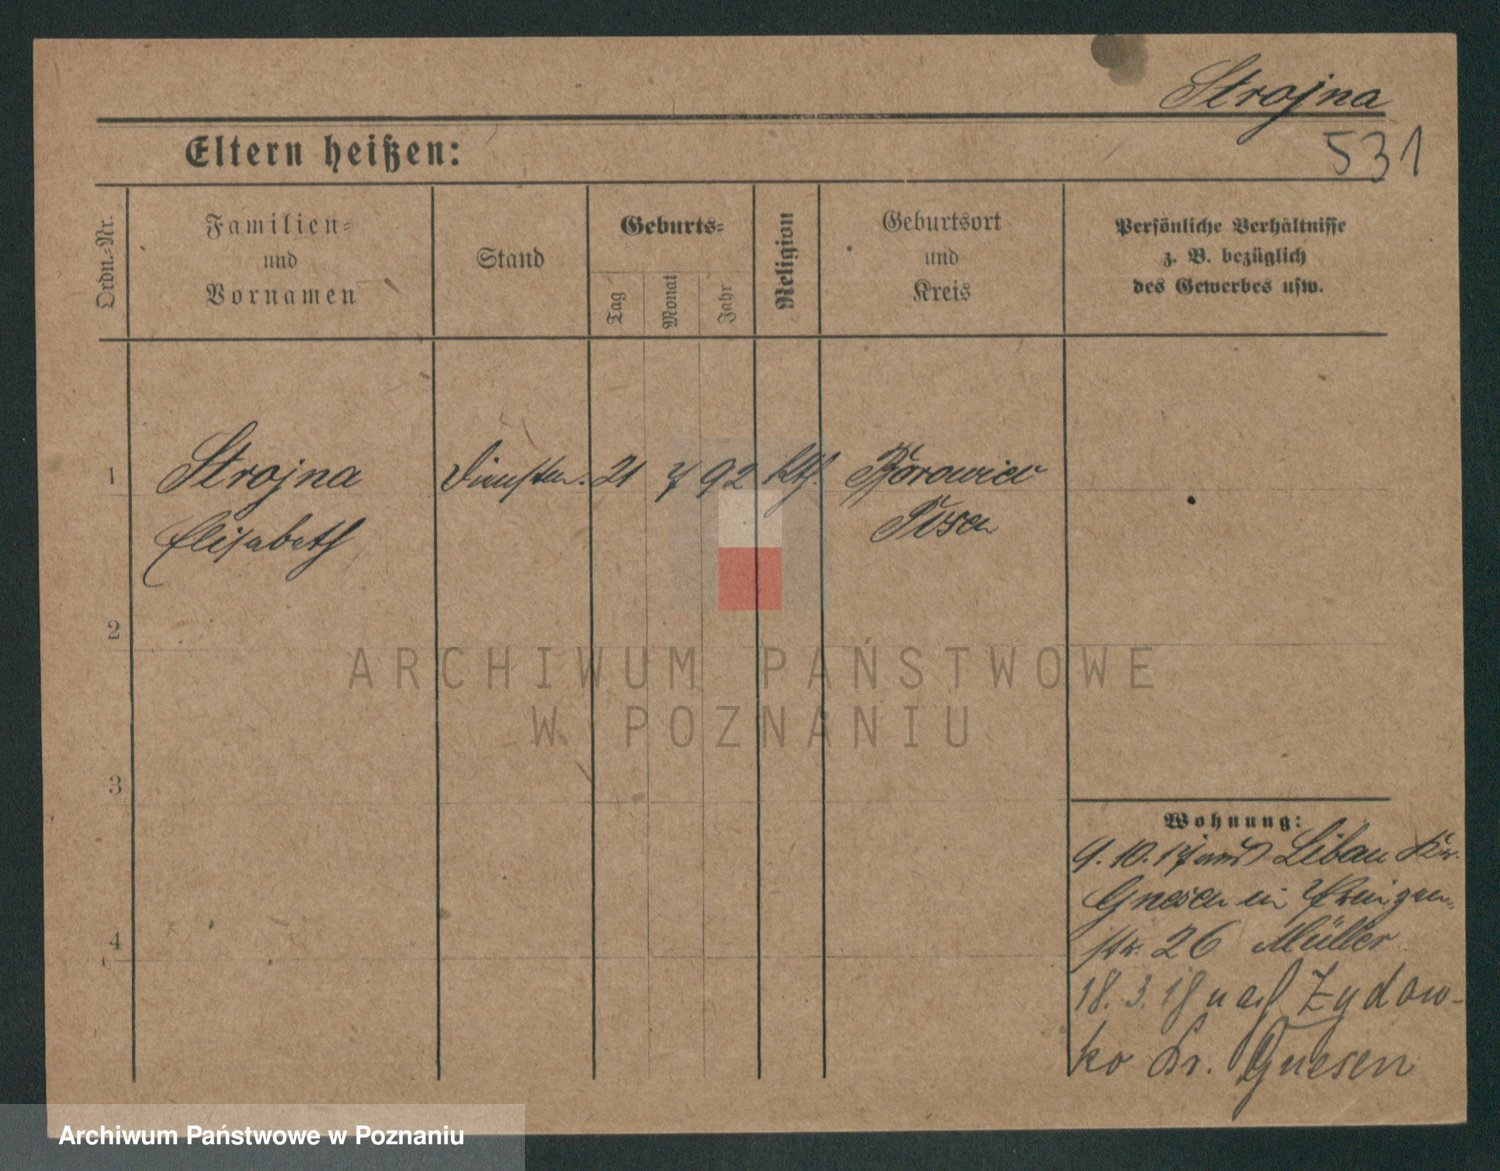 Strojna
531
Eltern heißen:
Ordn.-Nr.
Familien-
und
Vornamen
Stand
Geburts-
Tag
Monat
Jahr
Religion
Geburtsort
und
Kreis
Persönliche Verhältnisse
z. B. bezüglich
des Gewerbes usw.
1
Strojna
21
7
92
kth.
Borowiec
Elisabeth
Posen
2
ARCHIWUM PAŃSTWOWE
W POZNANIU
3
Wohnung:
9. 10. 17 aus Libau Kr.
Gnesen in
str. 26 Müller
4
18. 3. 18 nach Zydow-
ko Kr. Gnesen
Archiwum Państwowe w Poznaniu